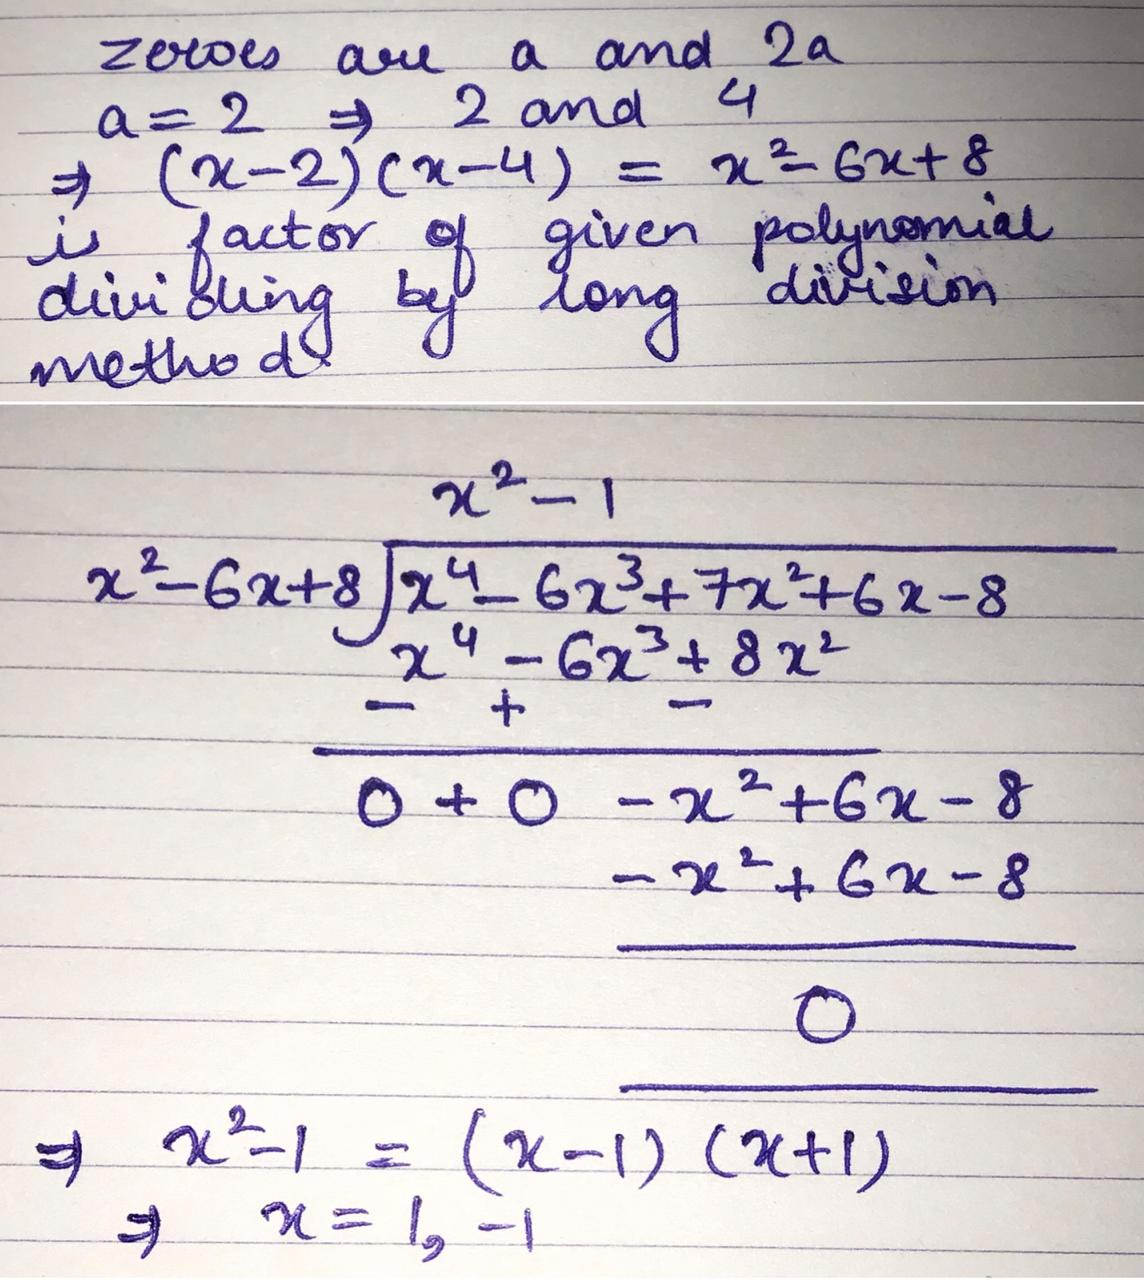 zeroes are a and 2a
a = 2 ⇒ 2 and 4
⇒ (x-2)(x-4) = x²-6x+8
is factor of given polynomial
dividing by long division
method.
x² - 1
x²-6x+8)x⁴-6x³+7x²+6x-8
x⁴-6x³+8x²
- + -
0 + 0 -x²+6x-8
-x²+6x-8
0
⇒ x²-1 = (x-1)(x+1)
⇒ x = 1, -1